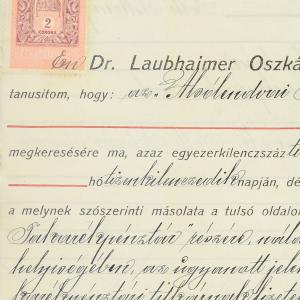 2
KORONA
Én Dr. Laubhaimer Oszká
tanusitom, hogy: az „Alsólendvai
megkeresésére ma, azaz egyezerkilenczszáz ti
hó tizenkilenczedik napján, dé
a melynek szószerinti másolata a tulsó oldalo
Takarékpénztár" részére, nála
helyiségében, az ugyanott jele
takarékpénztári titkárnak